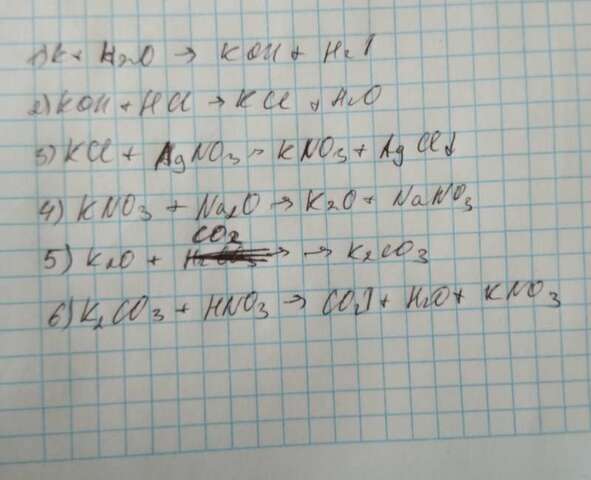 1) K + H2O → KOH + H2↑
2) KOH + HCl → KCl + H2O
3) KCl + AgNO3 → KNO3 + AgCl↓
4) KNO3 + Na2O → K2O + NaNO3
5) K2O + CO2 → → K2CO3
6) K2CO3 + HNO3 → CO2↑ + H2O + KNO3